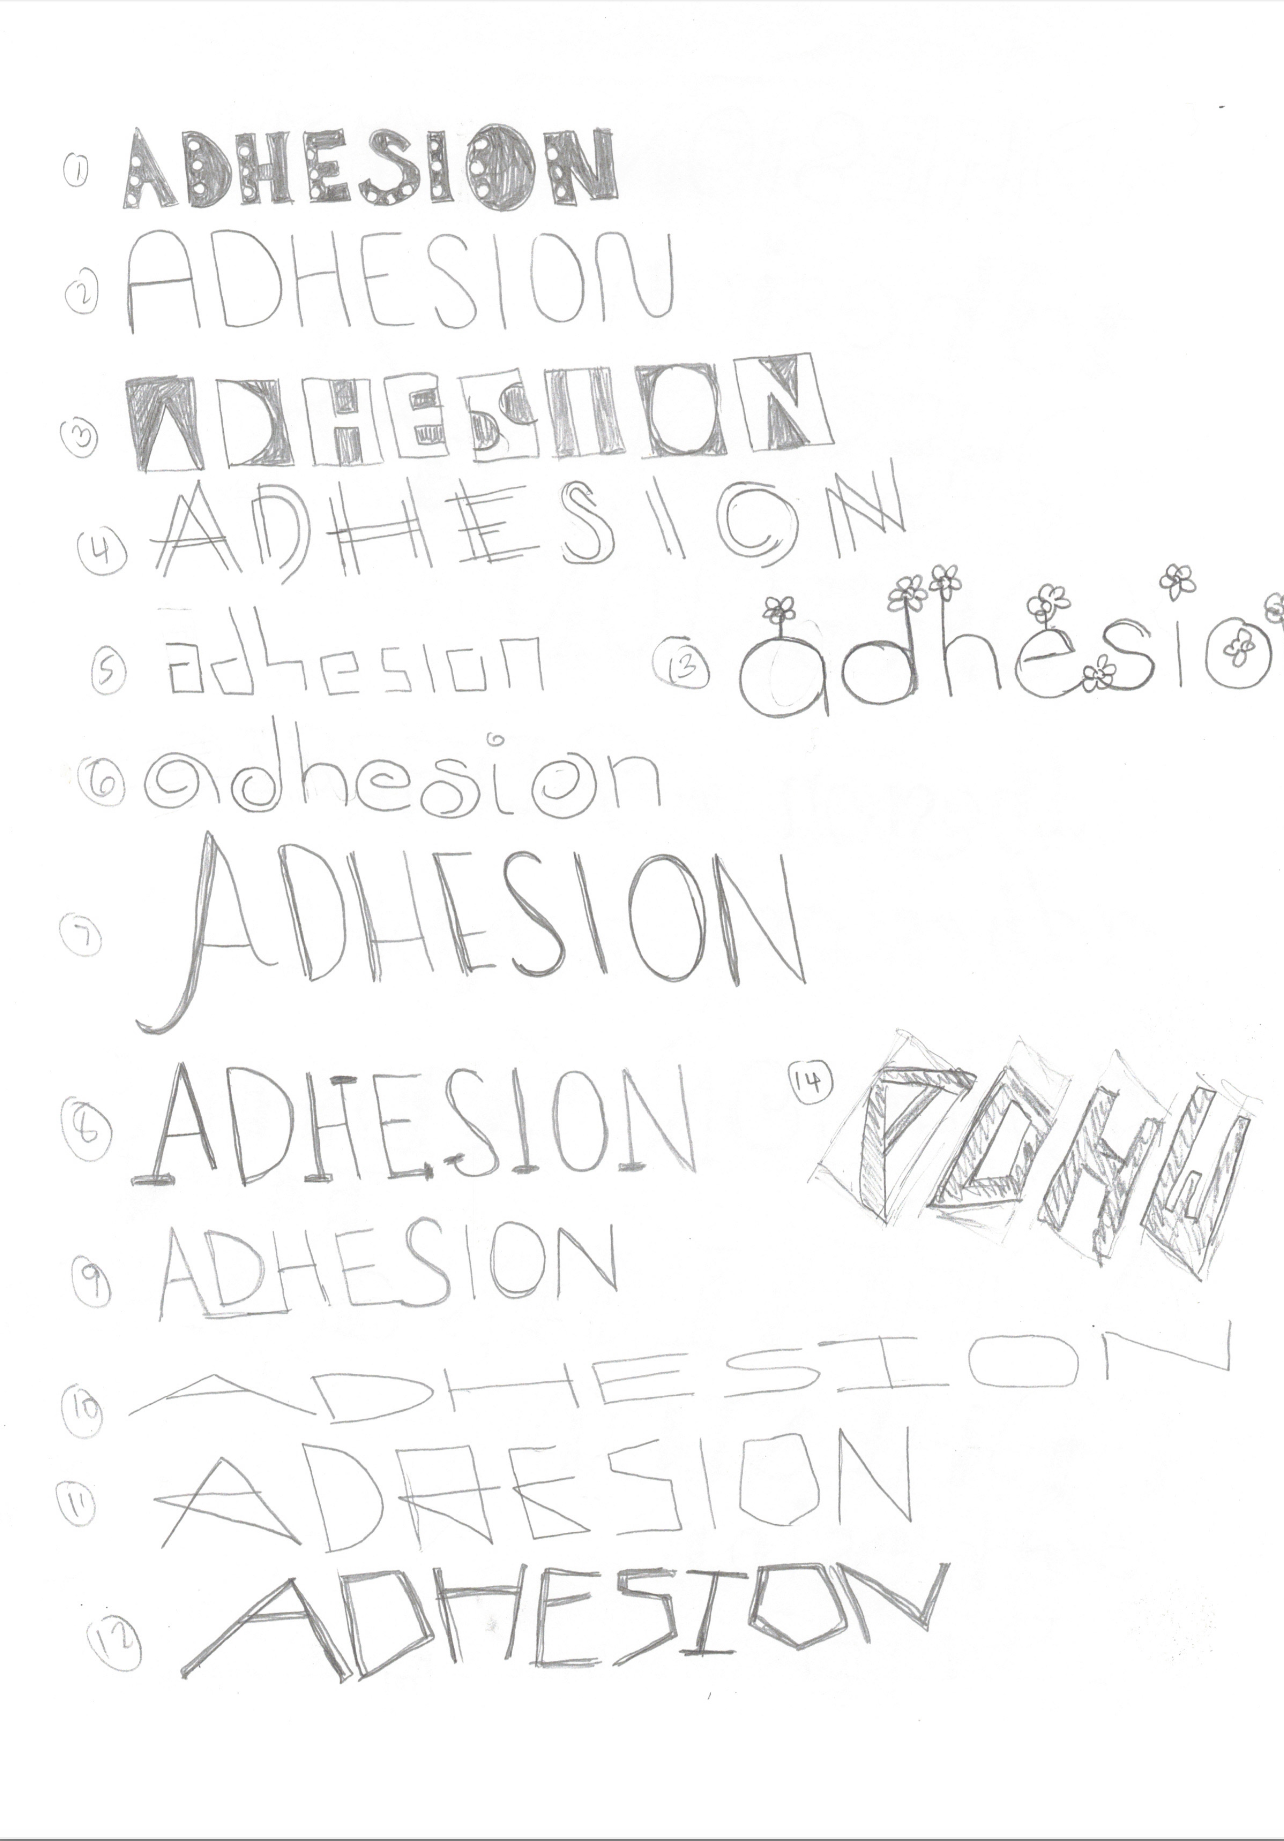 1 ADHESION
2 ADHESION
3 ADHESION
4 ADHESION
5 adhesion
13 adhesio
6 adhesion
7 ADHESION
8 ADHESION
14 ADH
9 ADHESION
10 ADHESION
11 ADHESION
12 ADHESION